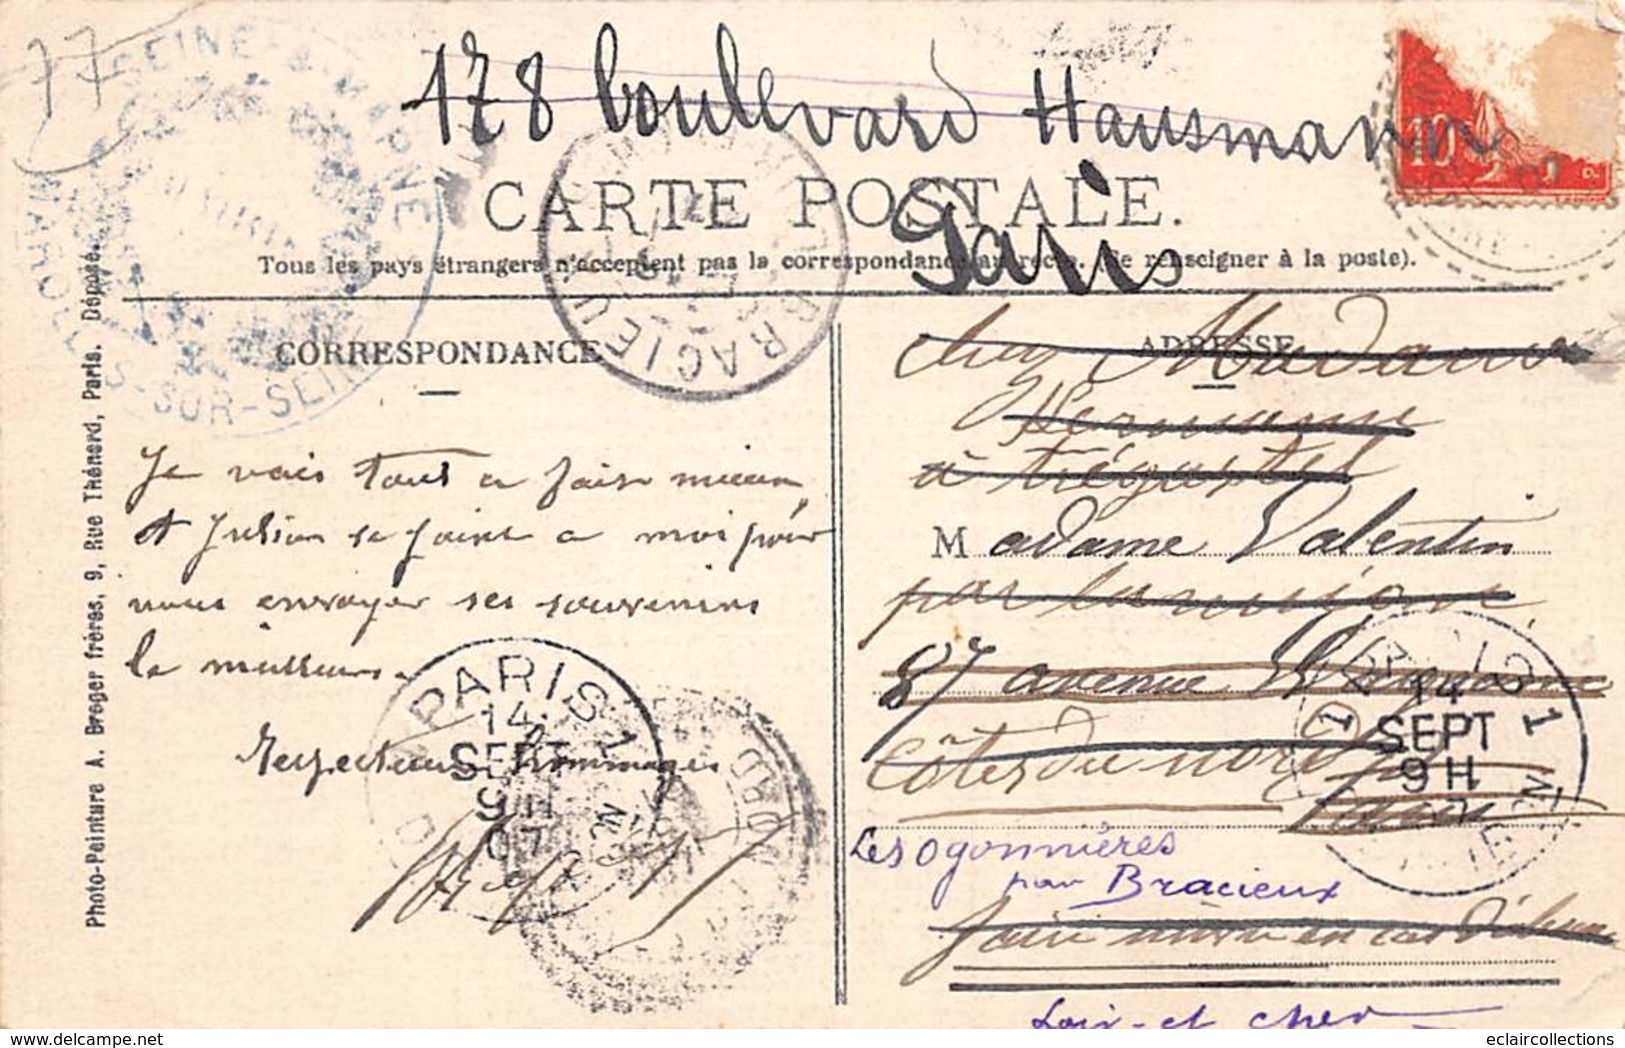 77
178 boulevard Hausmann
Paris
SEINE & MARNE
MAROLLES-SUR-SEINE
CARTE POSTALE.
Tous les pays étrangers n'acceptent pas la correspondance au recto. (Se renseigner à la poste).
10
BRACIEUX
CORRESPONDANCE
ADRESSE
Je vais tout a fait mieux
et Julien se joint a moi pour
vous envoyer ses souvenirs
le meilleurs.
Respectueux hommages
PARIS 1
14
SEPT
9 H
07
DISTRIBUTION
chez Madame
à Trégastel
Madame Valentin
par Lannion
87 avenue
Côtes du nord
Paris
14
SEPT
9 H
Les Ogonnières
par Bracieux
faire suivre en cas d'absence
Loir-et Cher
Photo-Peinture A. Breger frères, 9, Rue Thénard, Paris. Déposé.
eclaircollections